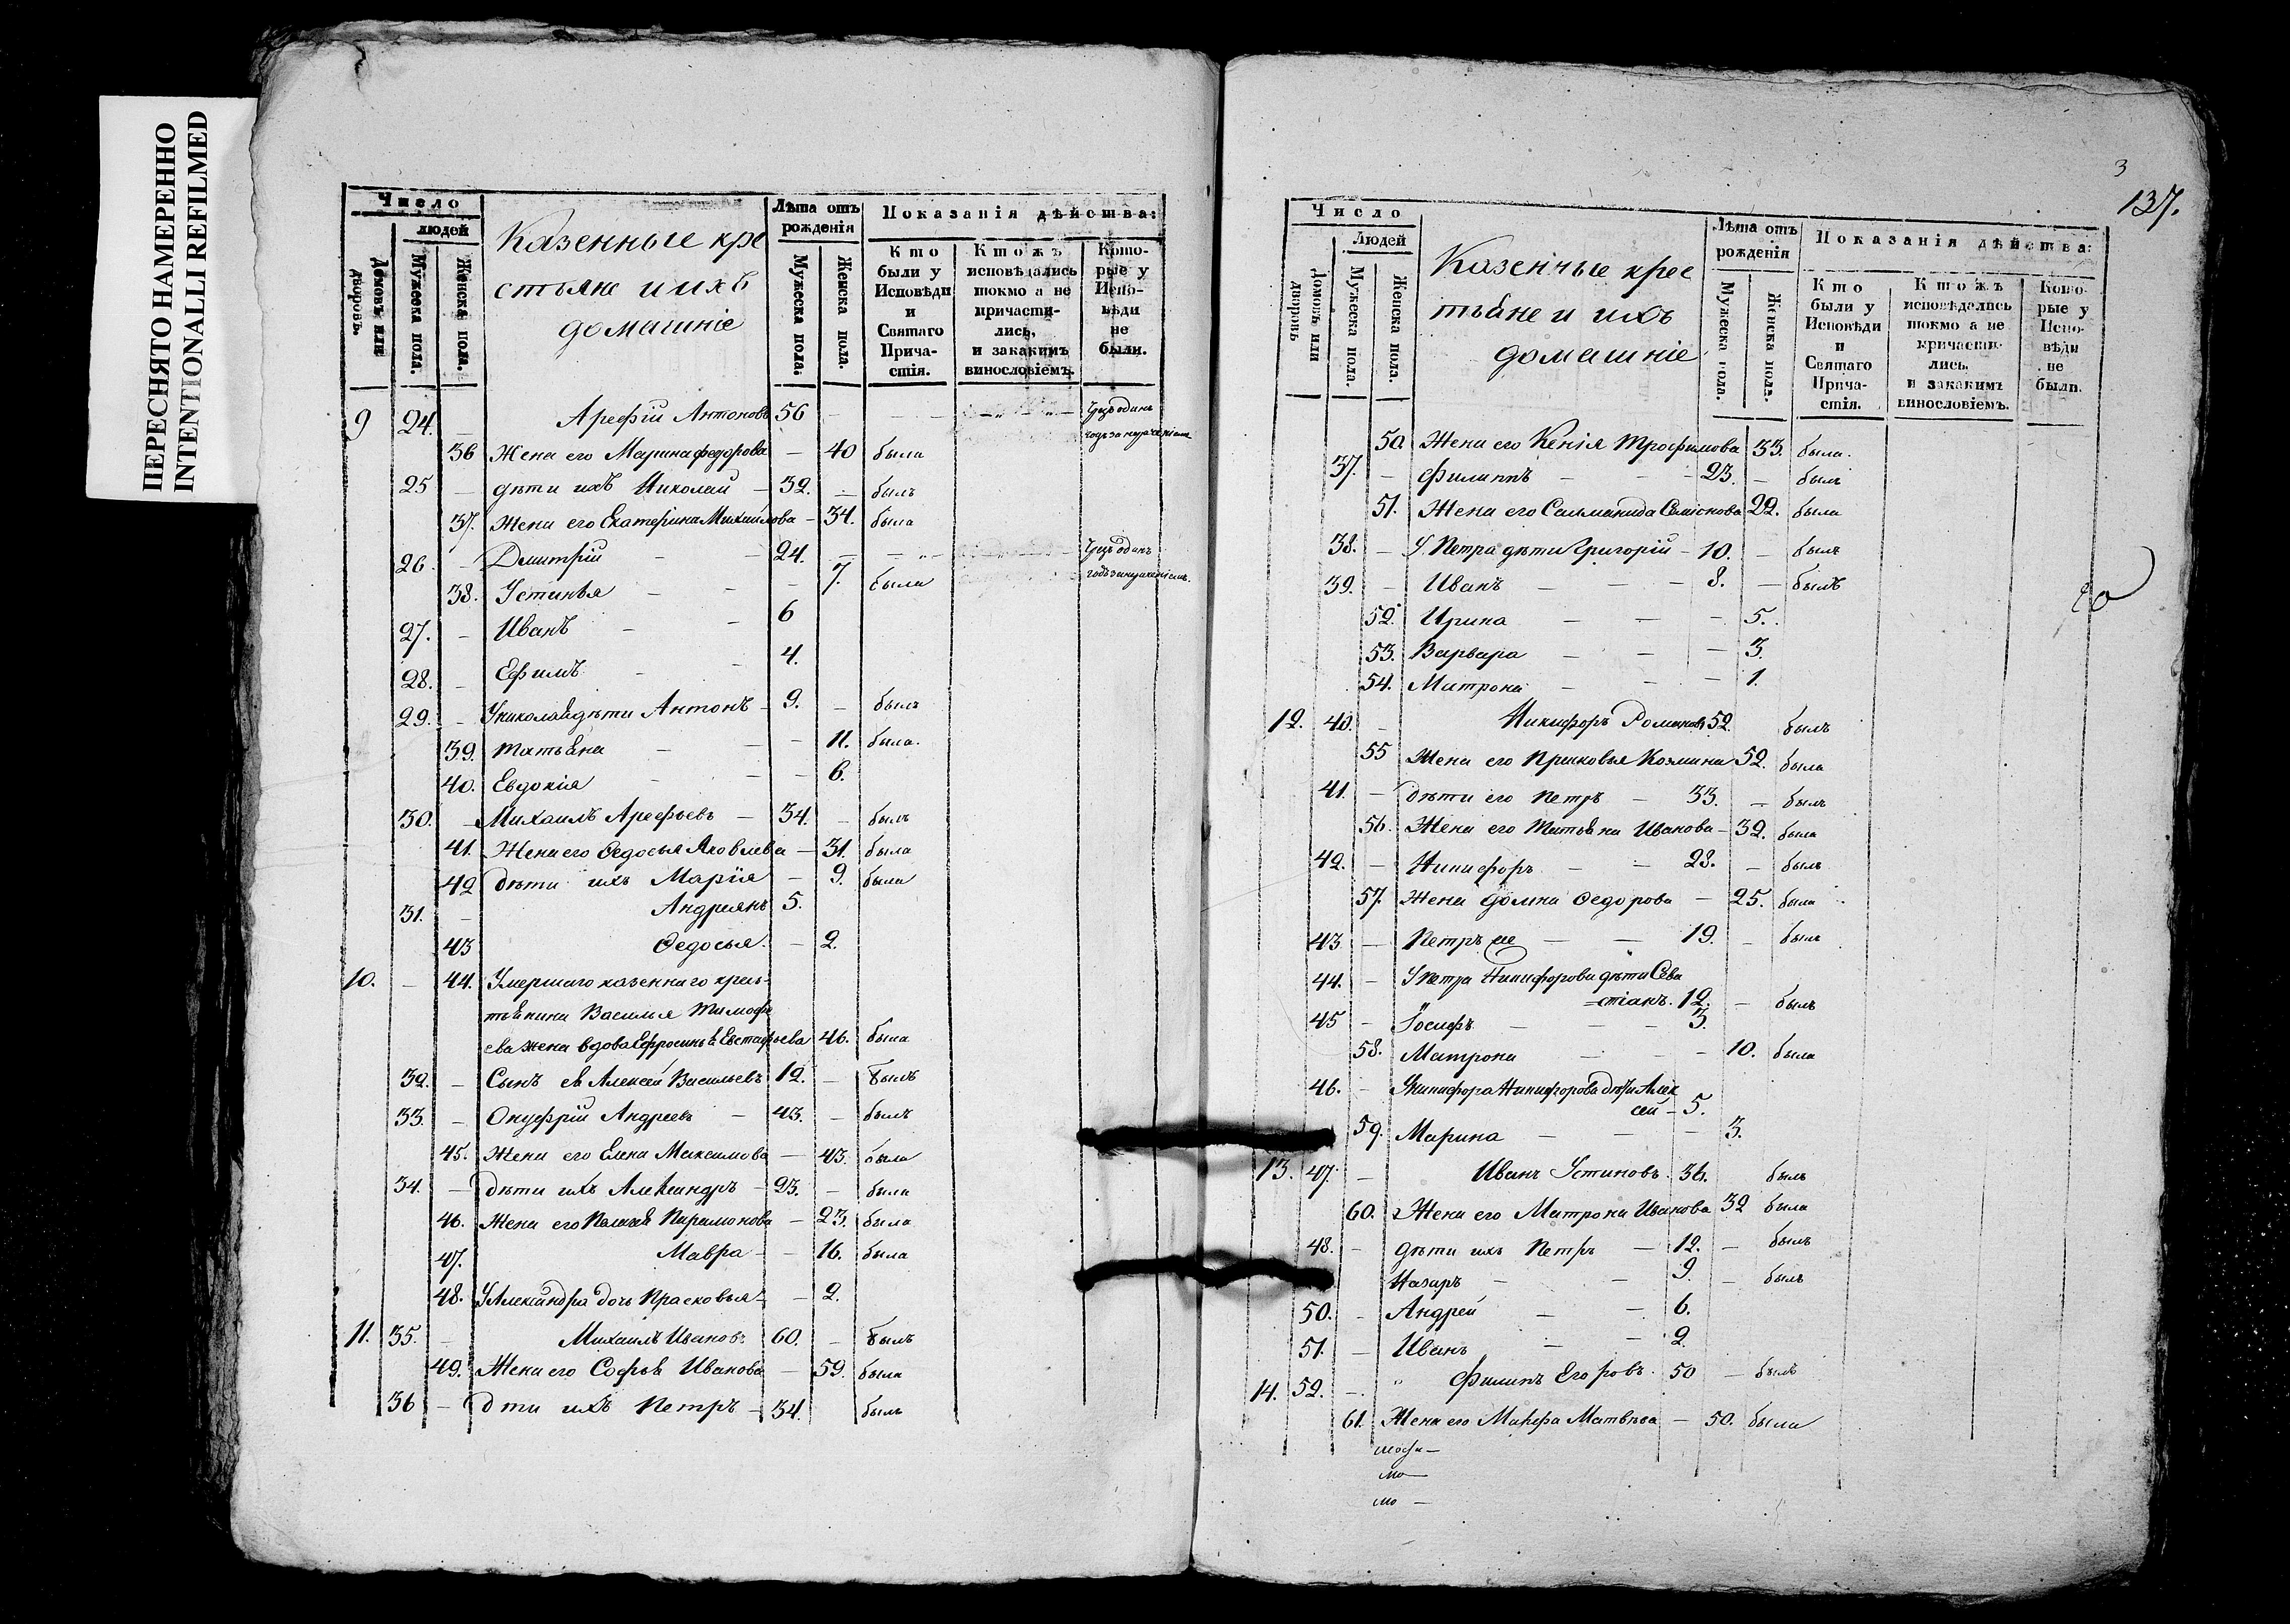 ПЕРЕСНЯТО НАМЕРЕННО
INTENTIONALLI REFILMED
Число
людей
Домовъ или дворовъ.
Мужеска пола.
Женска пола.
Казенные кре
стьяне и ихъ
домашніе
Лѣта отъ рожденія
Мужеска пола.
Женска пола.
Показанія дѣйства:
Кто были у Исповѣди и Святаго Прича-стія.
Ктожъ исповѣдались токмо а не причасти-лись, и закакимъ винословіемъ.
Кото-рые у Испо-вѣди не были.
9 24. – Арефій Антоновъ 56 – – –
36 Жена его Марина Федорова – 40 была
25 – дѣти ихъ Николай – 32. – былъ
37. Жена его Екатерина Михайлова – 34. была
26. – Дмитрій – – 24. – –
38. Устинья – – – 7. была
27. – Иванъ – – 6
28. – Ефимъ – – 4.
29. – У Николая дѣти Антонъ – 9. – былъ
39. Татьяна – – – 11. была.
40. Евдокія – – – 6.
30. – Михаилъ Арефьевъ – 34. – былъ
41. Жена его Ѳедосья Яковлева – 31. была
42 дѣти ихъ Марія – 9. была
31. – Андреянъ 5.
43 Ѳедосья. – 2.
10. – 44. Умершаго казеннаго крес-
тьянина Василья Тимофе
ева жена вдова Ефросинья Евстафьева 46. была
32. – Сынъ ея Алексей Васильевъ 12. – былъ
33. – Онуфрій Андреевъ – 43. – былъ
45. Жена его Елена Максимова – 43. была
34. – дѣти ихъ Александръ – 23. – была
46. Жена его Парамонова – 23. была
47. Мавра – – 16. была
48. У Александра дочь Прасковья – – 2.
11. 35. – Михаилъ Ивановъ 60. – былъ
49. Жена его Софья Иванова – 59. была
36 – д ти ихъ Петръ – 34. былъ
3
137.
Число
Людей
Домовъ или дворовъ
Мужеска пола.
Женска пола.
Казенные крес
тьяне и ихъ
домашніе
Лѣта отъ рожденія
Мужеска пола.
Женска пола.
Показанія дѣйства:
Кто были у Исповѣди и Святаго Прича-стія.
Ктожъ исповѣдались токмо а не причасти-лись, и закакимъ винословіемъ.
Кото-рые у Испо-вѣди не были.
50. Жена его Ксенія Трофимова 33. была.
37. – Филиппъ – – 23. – былъ
51. Жена его 22. была
38. – У Петра дѣти Григорій – 10. – былъ
39. – Иванъ – – 8. – былъ
52. Ирина – – – 5.
53. Варвара – – – 3.
54. Матрона – – – 1.
12. 40. – Никифоръ Романовъ 52. былъ
55 Жена его Прасковья Козмина 52. была
41. – дѣти его Петръ – 33. – былъ
56. Жена его Татьяна Иванова – 32. была
42. – Никифоръ – – 28. – былъ
57. Жена Домна Ѳедорова – 25. была
43 – Петръ – – 19. – былъ
44. – У Петра Никифорова дѣти Сева
=стіанъ. 12. – былъ
45 – Іосифъ – – – 3.
58. Матрона – – 10. была
46. – У Никифора Никифорова дѣти Алек
сей – 5.
59. Марина – – – 3.
13. 47. – Иванъ Устиновъ. 36. былъ
60. Жена его Матрона Иванова 32 была
48. – дѣти ихъ Петръ – 12. – былъ
Назаръ – – 9. – былъ
50. – Андрей – – 6.
51. – Иванъ – – 2.
14. 52. – Филипъ Егоровъ. 50 – былъ
61. Жена его Марфа Матвѣева – 50. была
мо –
мо –